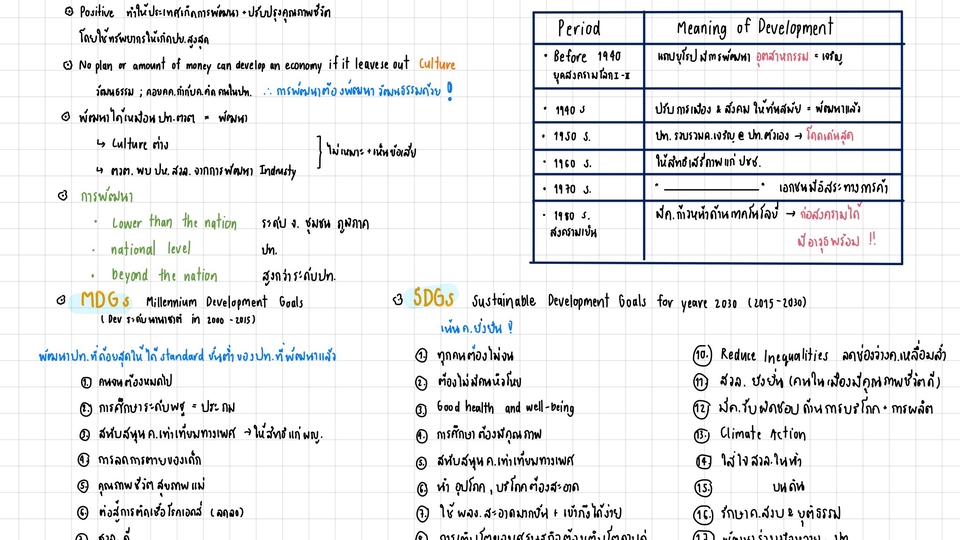 Positive ทำให้ประเทศเกิดการพัฒนา + ปรับปรุงคุณภาพชีวิต
โดยใช้ทรัพยากรให้เกิดปย.สูงสุด
No plan or amount of money can develop an economy if it leavese out Culture
วัฒนธรรม ; ∴ การพัฒนาต้องพัฒนาวัฒนธรรมด้วย !
พัฒนาได้เหมือน ปท.ตวต = พัฒนา
↳ Culture ต่าง
↳ ตวต. พบ ปห. สวล. จากการพัฒนา Indrusty
ไม่เหมาะ + เห็นข้อเสีย
การพัฒนา
• Lower than the nation ระดับ จ. ชุมชน ภูมิภาค
• national level ปท.
• beyond the nation สูงกว่าระดับปท.
Period Meaning of Development
• Before 1940 แถบยุโรป มีการพัฒนา อุตสาหกรรม = เจริญ
ยุคสงครามโลก I-II
• 1940 s ปรับการเมือง & สังคม ให้ทันสมัย = พัฒนาแล้ว
• 1950 s. ปท. รวบรวมค.เจริญ @ ปท.ตัวเอง → โดดเด่นสุด
• 1960 s. ให้สิทธิเสรีภาพแก่ ปชช.
• 1970 s. " " เอกชนมีอิสระทางการค้า
• 1980 s. มีค.ก้าวหน้าด้านเทคโนโลยี → ก่อสงครามได้
สงครามเย็น มีอาวุธพร้อม !!
MDGs Millennium Development Goals
(Dev ระดับนานาชาติ in 2000 - 2015)
พัฒนาปท.ที่ด้อยสุดให้ได้ standard ขั้นต่ำของปท.ที่พัฒนาแล้ว
1. คนจนต้องหมดไป
2. การศึกษาระดับพฐ = ประถม
3. สนับสนุนค.เท่าเทียมทางเพศ → ให้สิทธิแก่ ผญ.
4. การลดการตายของเด็ก
5. คุณภาพชีวิต สุขภาพแม่
6. ต่อสู้การติดเชื้อโรคเอดส์ (ลดลง)
SDGs Sustainable Development Goals for yeare 2030 (2015-2030)
เน้นค.ยั่งยืน !
1. ทุกคนต้องไม่จน
2. ต้องไม่มีคนหิวโหย
3. Good health and well-being
4. การศึกษาต้องมีคุณภาพ
5. สนับสนุนค.เท่าเทียมทางเพศ
6. น้ำ อุปโภค, บริโภคต้องสะอาด
7. ใช้ พลง. สะอาดมากขึ้น + เข้าถึงได้ง่าย
10. Reduce Inequalities ลดช่องว่างค.เหลื่อมล้ำ
11. สวล. ยั่งยืน (คนในเมืองมีคุณภาพชีวิตดี)
12. มีค.รับผิดชอบด้านการบริโภค + การผลิต
13. Climate Action
14. ใส่ใจ สวล.ในน้ำ
15. บนดิน
16. รักษาค.สงบ & ยุติธรรม